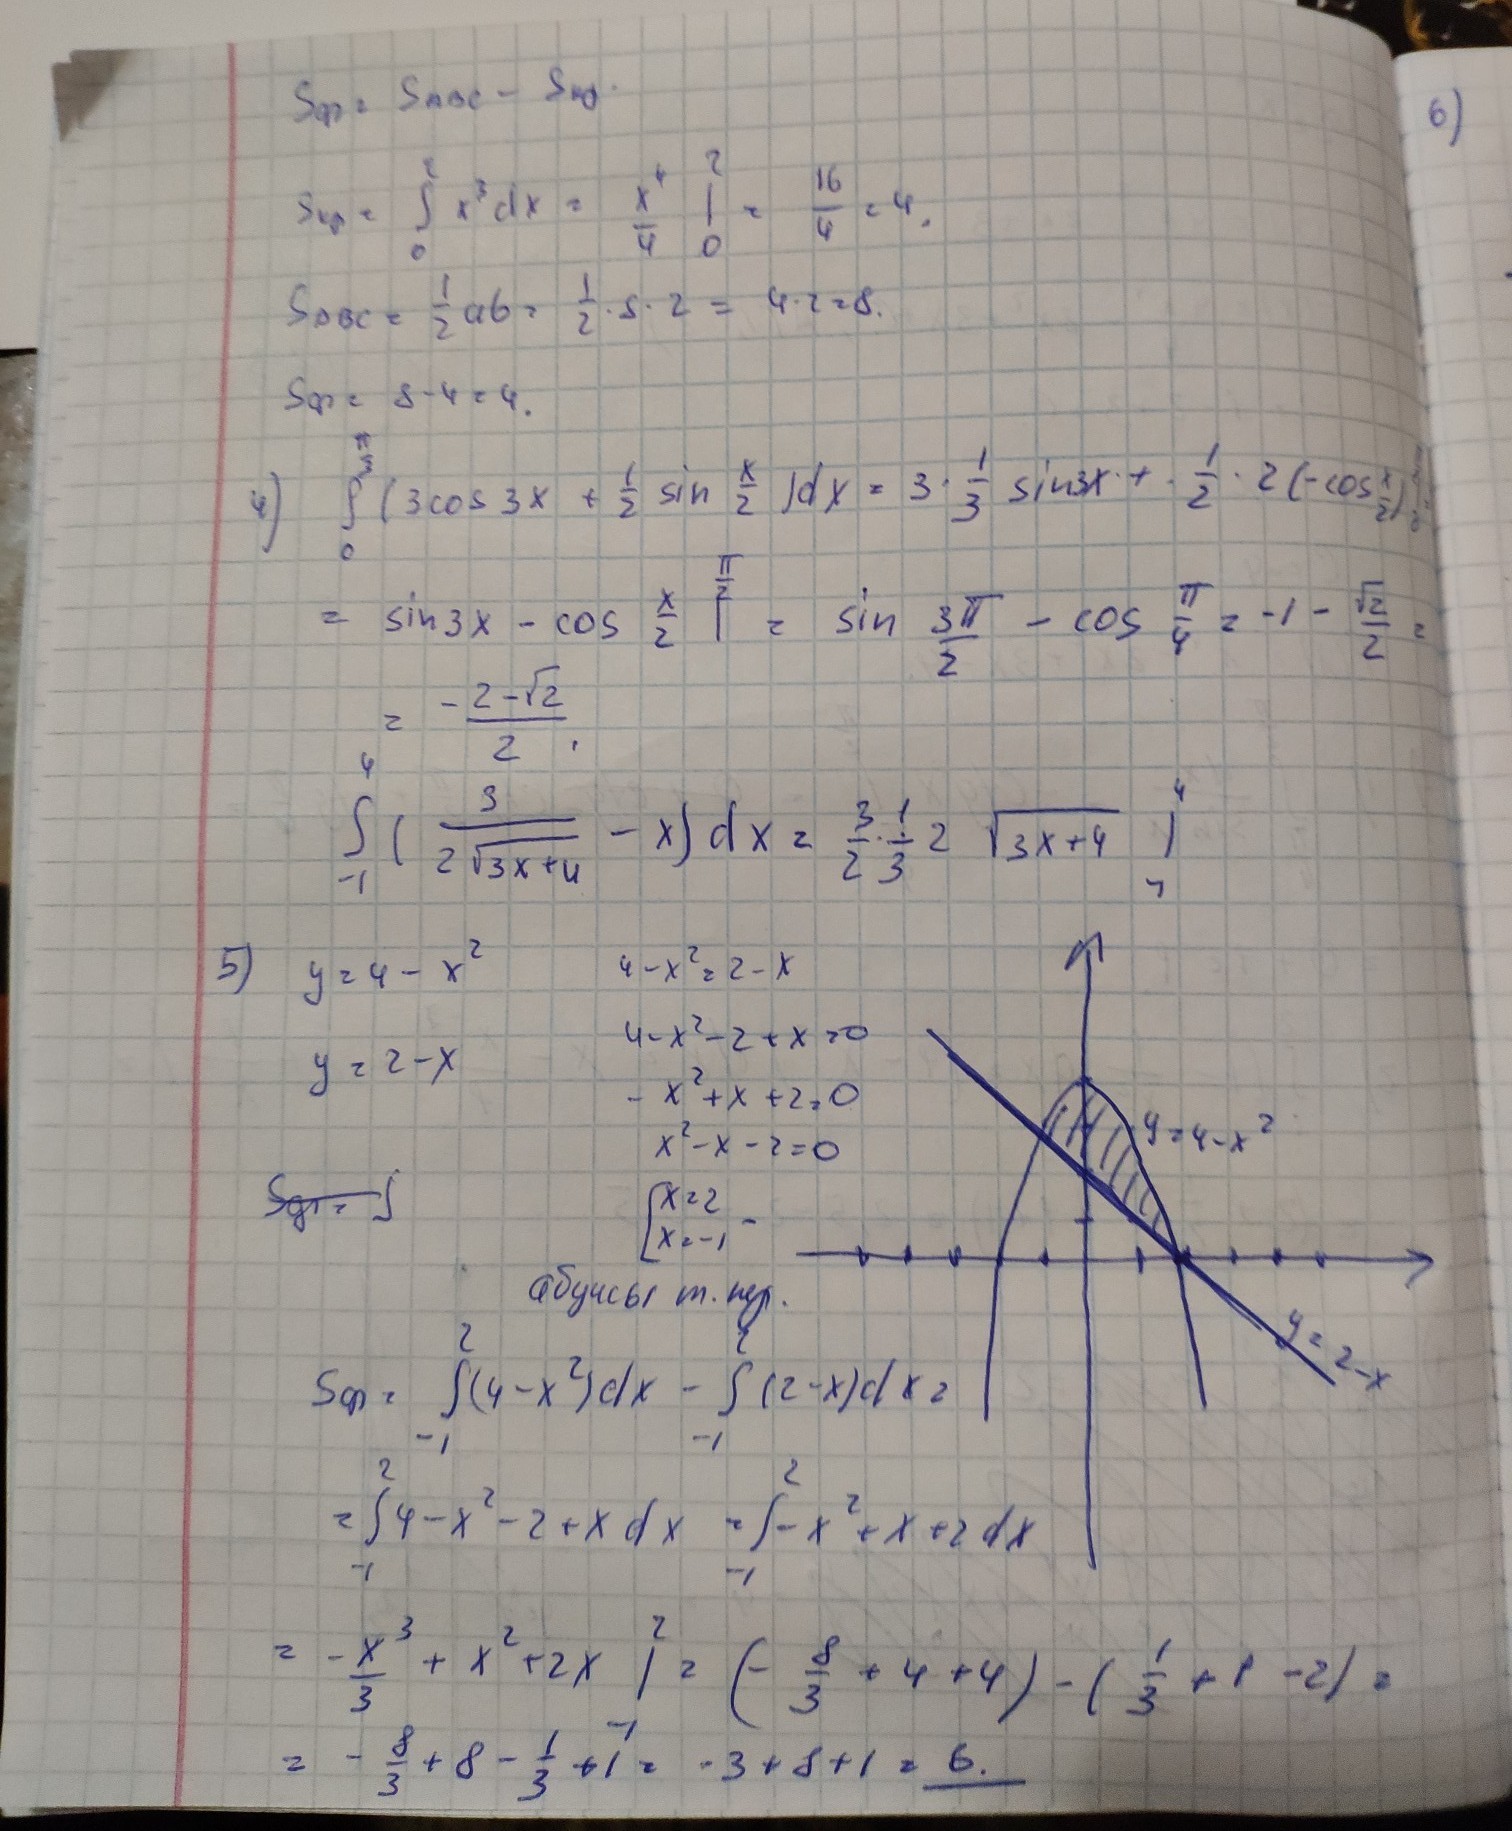 Sф = SABC - Sкр.
Sкр = ∫₀² x³dx = x⁴/4 |₀² = 16/4 = 4.
SABC = 1/2 ab = 1/2 · 8 · 2 = 4·2=8.
Sф = 8-4=4.
4) ∫₀^(π/3) (3cos3x + 1/2 sin x/2)dx = 3·1/3 sin3x + 1/2 · 2(-cos x/2)
= sin3x - cos x/2 |^(π/2) = sin 3π/2 - cos π/4 = -1 - √2/2 =
= (-2-√2)/2.
∫₋₁⁴ (3/(2√(3x+4)) - x)dx = 3/2 · 1/3 · 2 √(3x+4) |₋₁⁴
5) y = 4 - x²
y = 2-x
4-x²=2-x
4-x²-2+x=0
-x²+x+2=0
x²-x-2=0
[x=2
x=-1
абциссы т. пер.
y=4-x²
y=2-x
Sф = ∫₋₁² (4-x²)dx - ∫₋₁² (2-x)dx =
= ∫₋₁² 4-x²-2+x dx = ∫₋₁² -x²+x+2 dx
= -x³/3 + x² + 2x |₋₁² = (-8/3 + 4 + 4) - (1/3 + 1 - 2) =
= -8/3 + 8 - 1/3 + 1 = -3+8+1 = 6.
6)